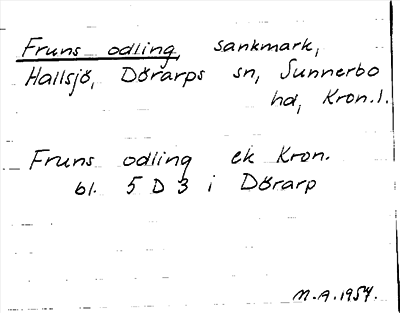 Fruns odling, sankmark,
Hallsjö, Dörarps sn, Sunnerbo
hd, Kron.l.
Fruns odling ek Kron.
bl. 5 D 3 i Dörarp
M.A.1954.